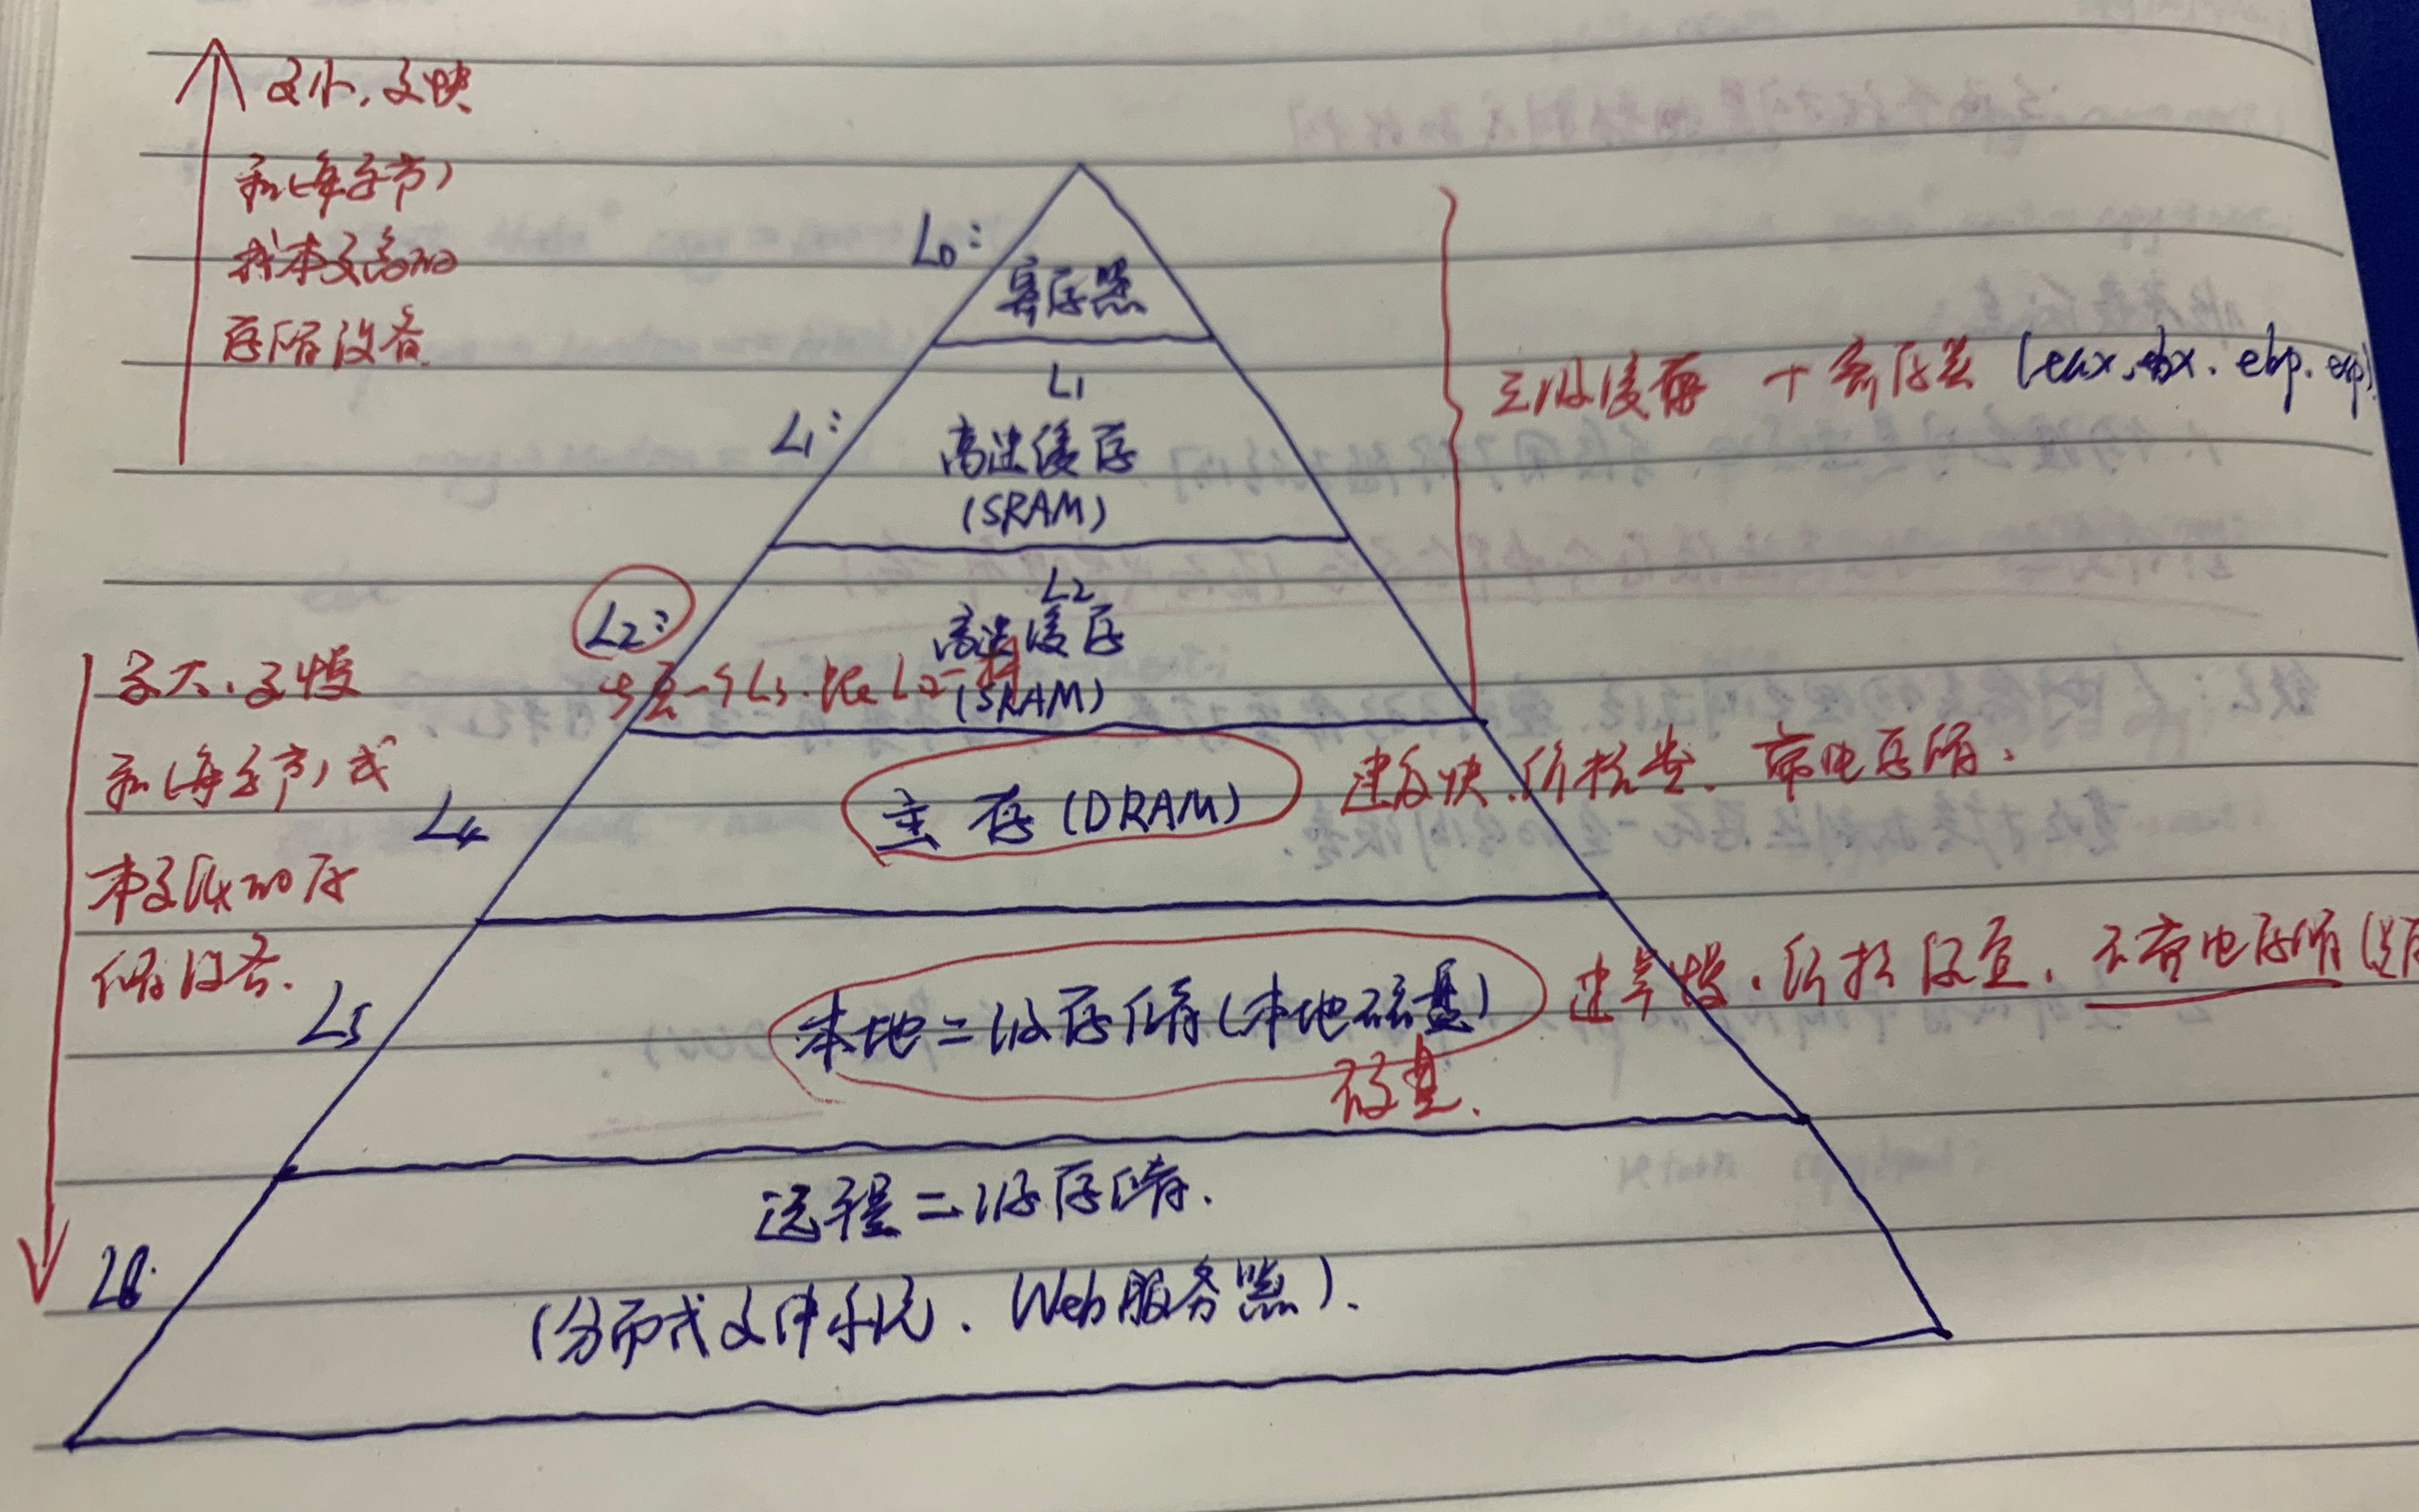 更小,更快
和(每字节)
成本更高的
存储设备
L0:
寄存器
L1:
L1
高速缓存
(SRAM)
三级缓存 + 寄存器 (eax, ebx. ebp. esp)
L2:
L2
高速缓存
(SRAM)
还有一个L3.比L2一样
更大.更慢
和(每字节)成
本更低的存
储设备.
L4
主存(DRAM)
速度快.价格贵.带电存储.
L5
本地二级存储(本地磁盘)
速率慢.价格便宜.不带电存储
磁盘.
L6:
远程二级存储.
(分布式文件系统.Web服务器).